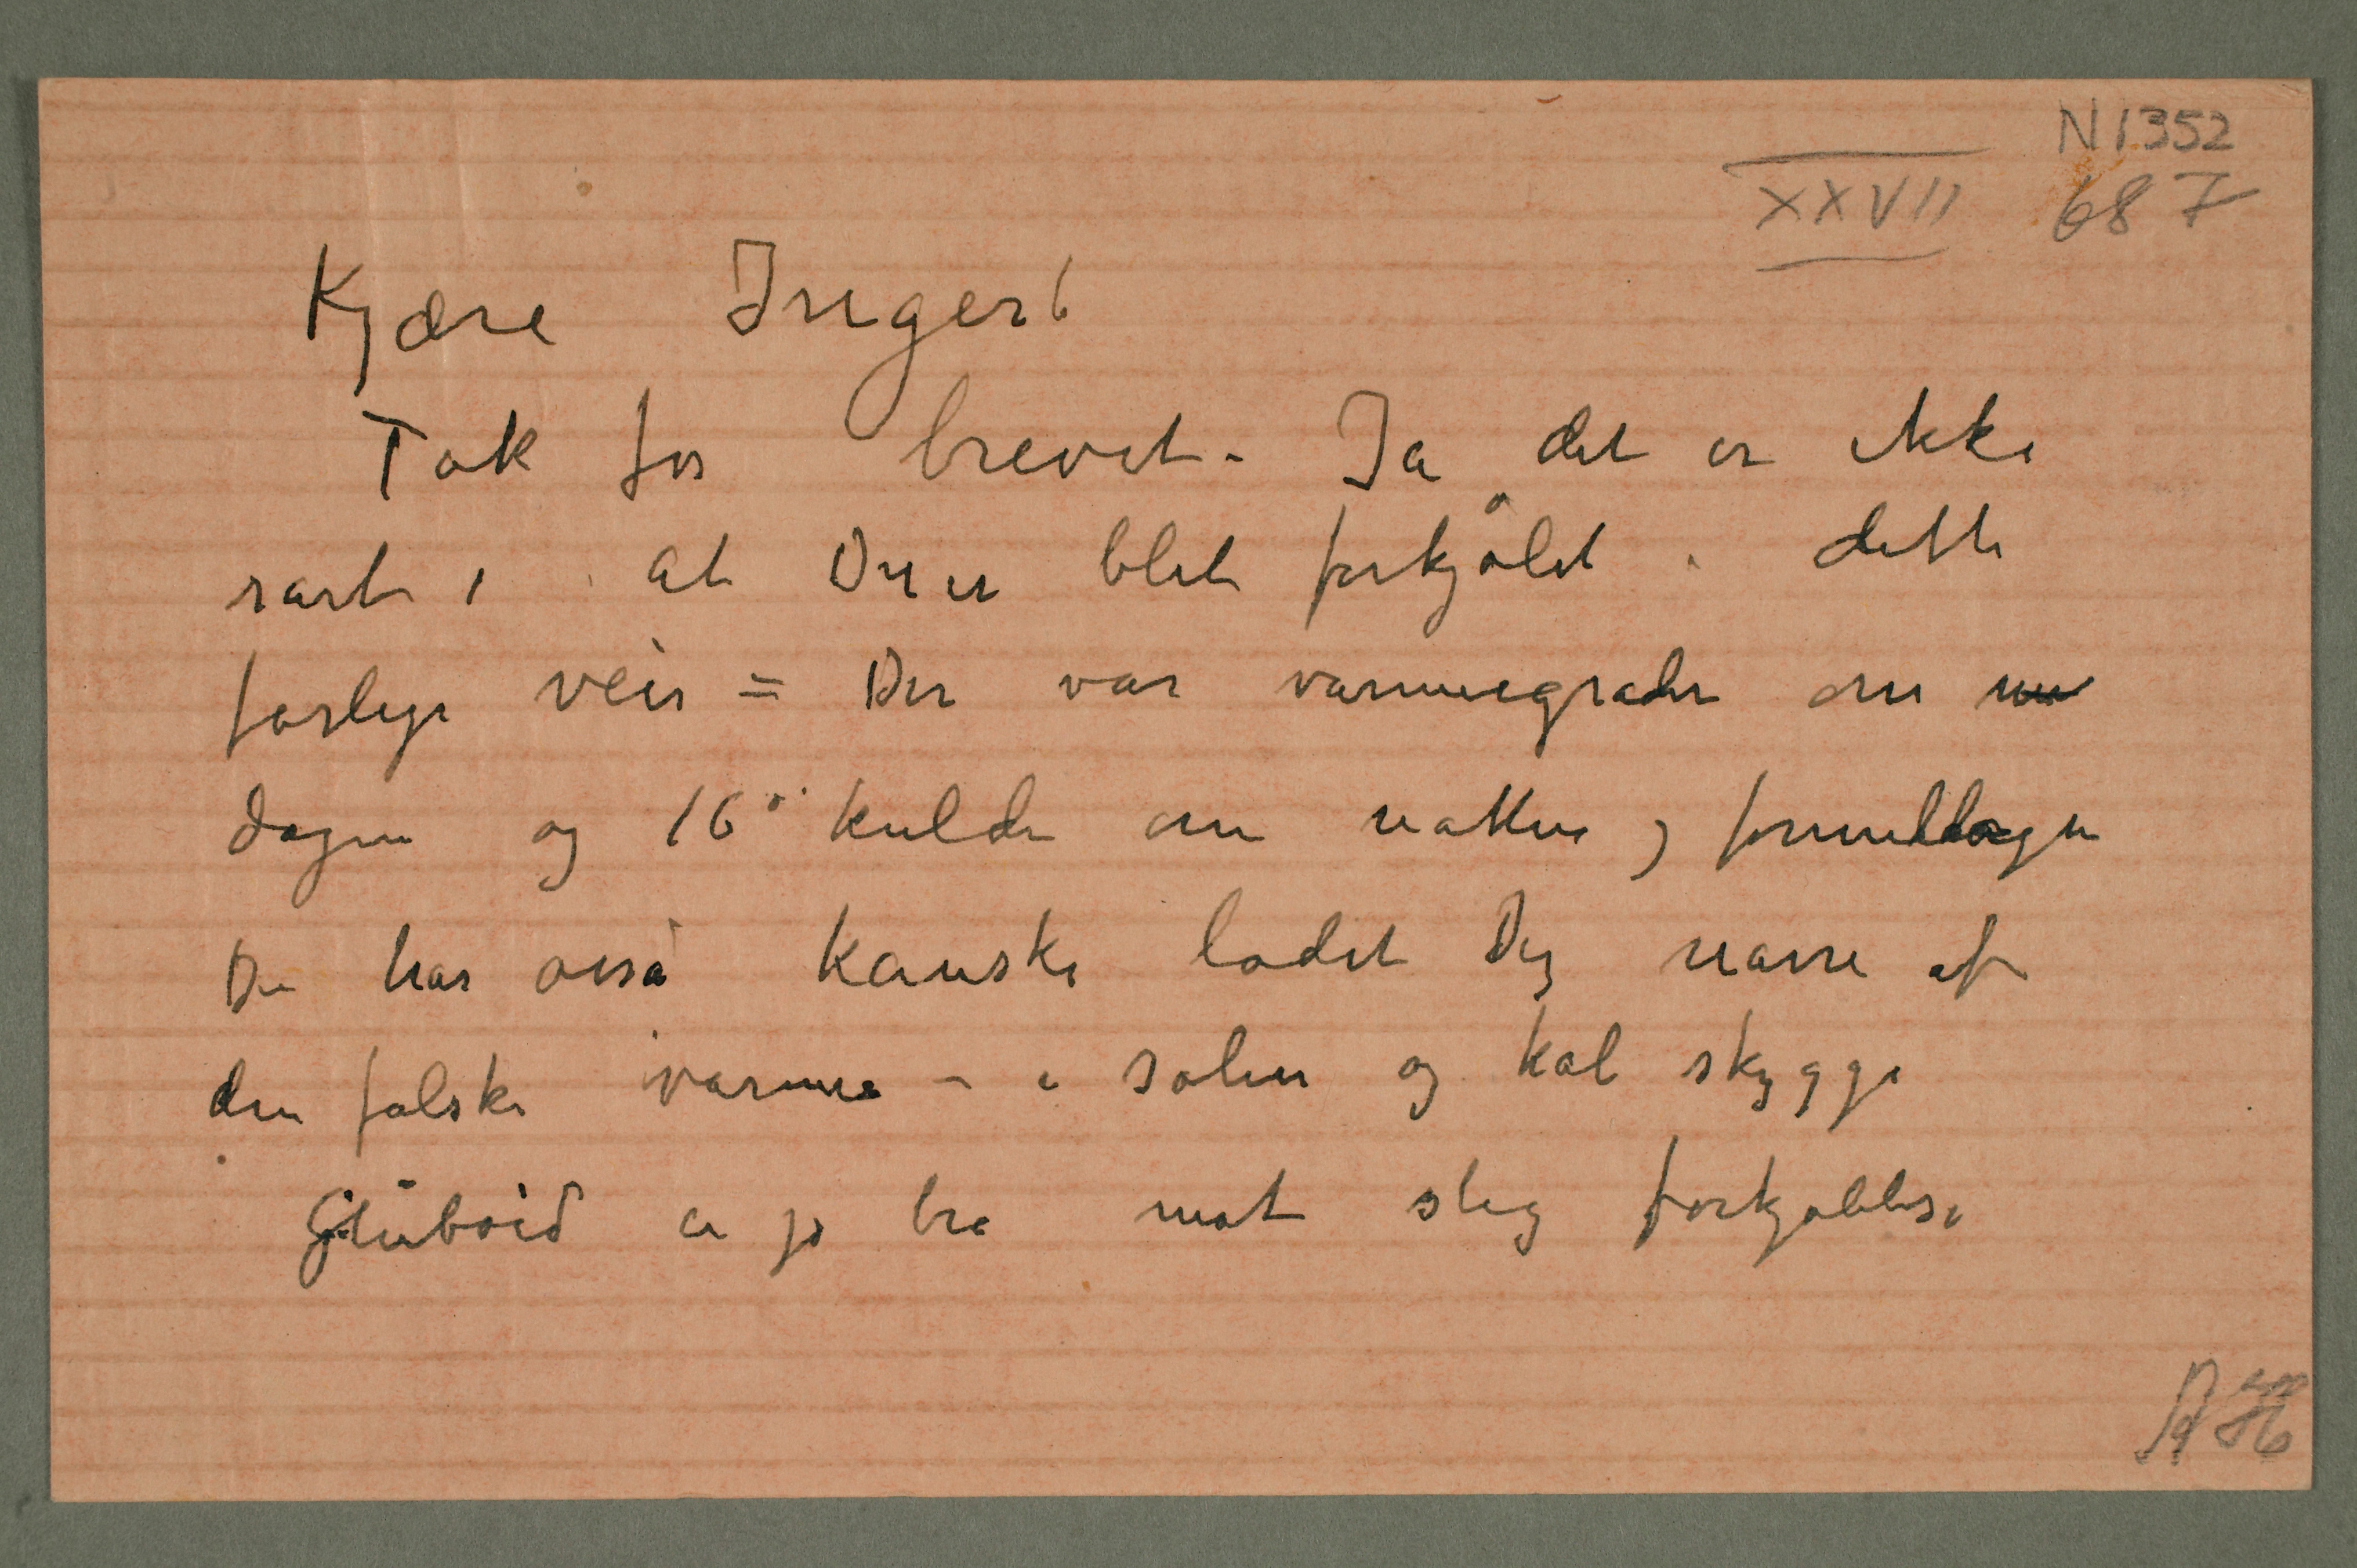 N 1352
XXVII 687
Kjære Inger!
Tak for brevet. – Ja det er ikke
rart, at Du er blet forkjølet i dette
farlige veir = Der var varmegrader om
dagen og 16° kulde om natten og formiddagen
Du har også kanske ladet Dig narre af
den falske varme – i solen og kal skygge
Glühbad er jo bra mot slig forkjølelse